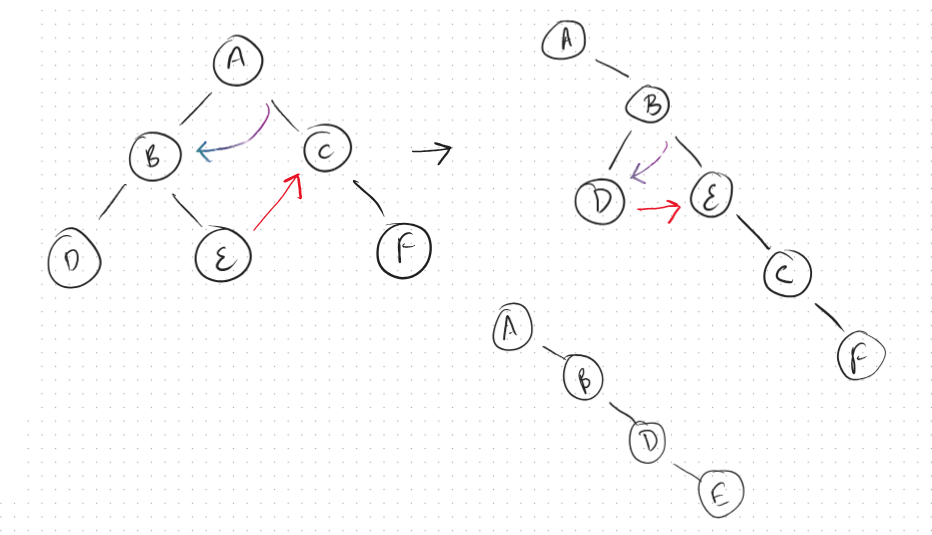 A
B
C
D
E
F
A
B
D
E
C
F
A
B
D
E